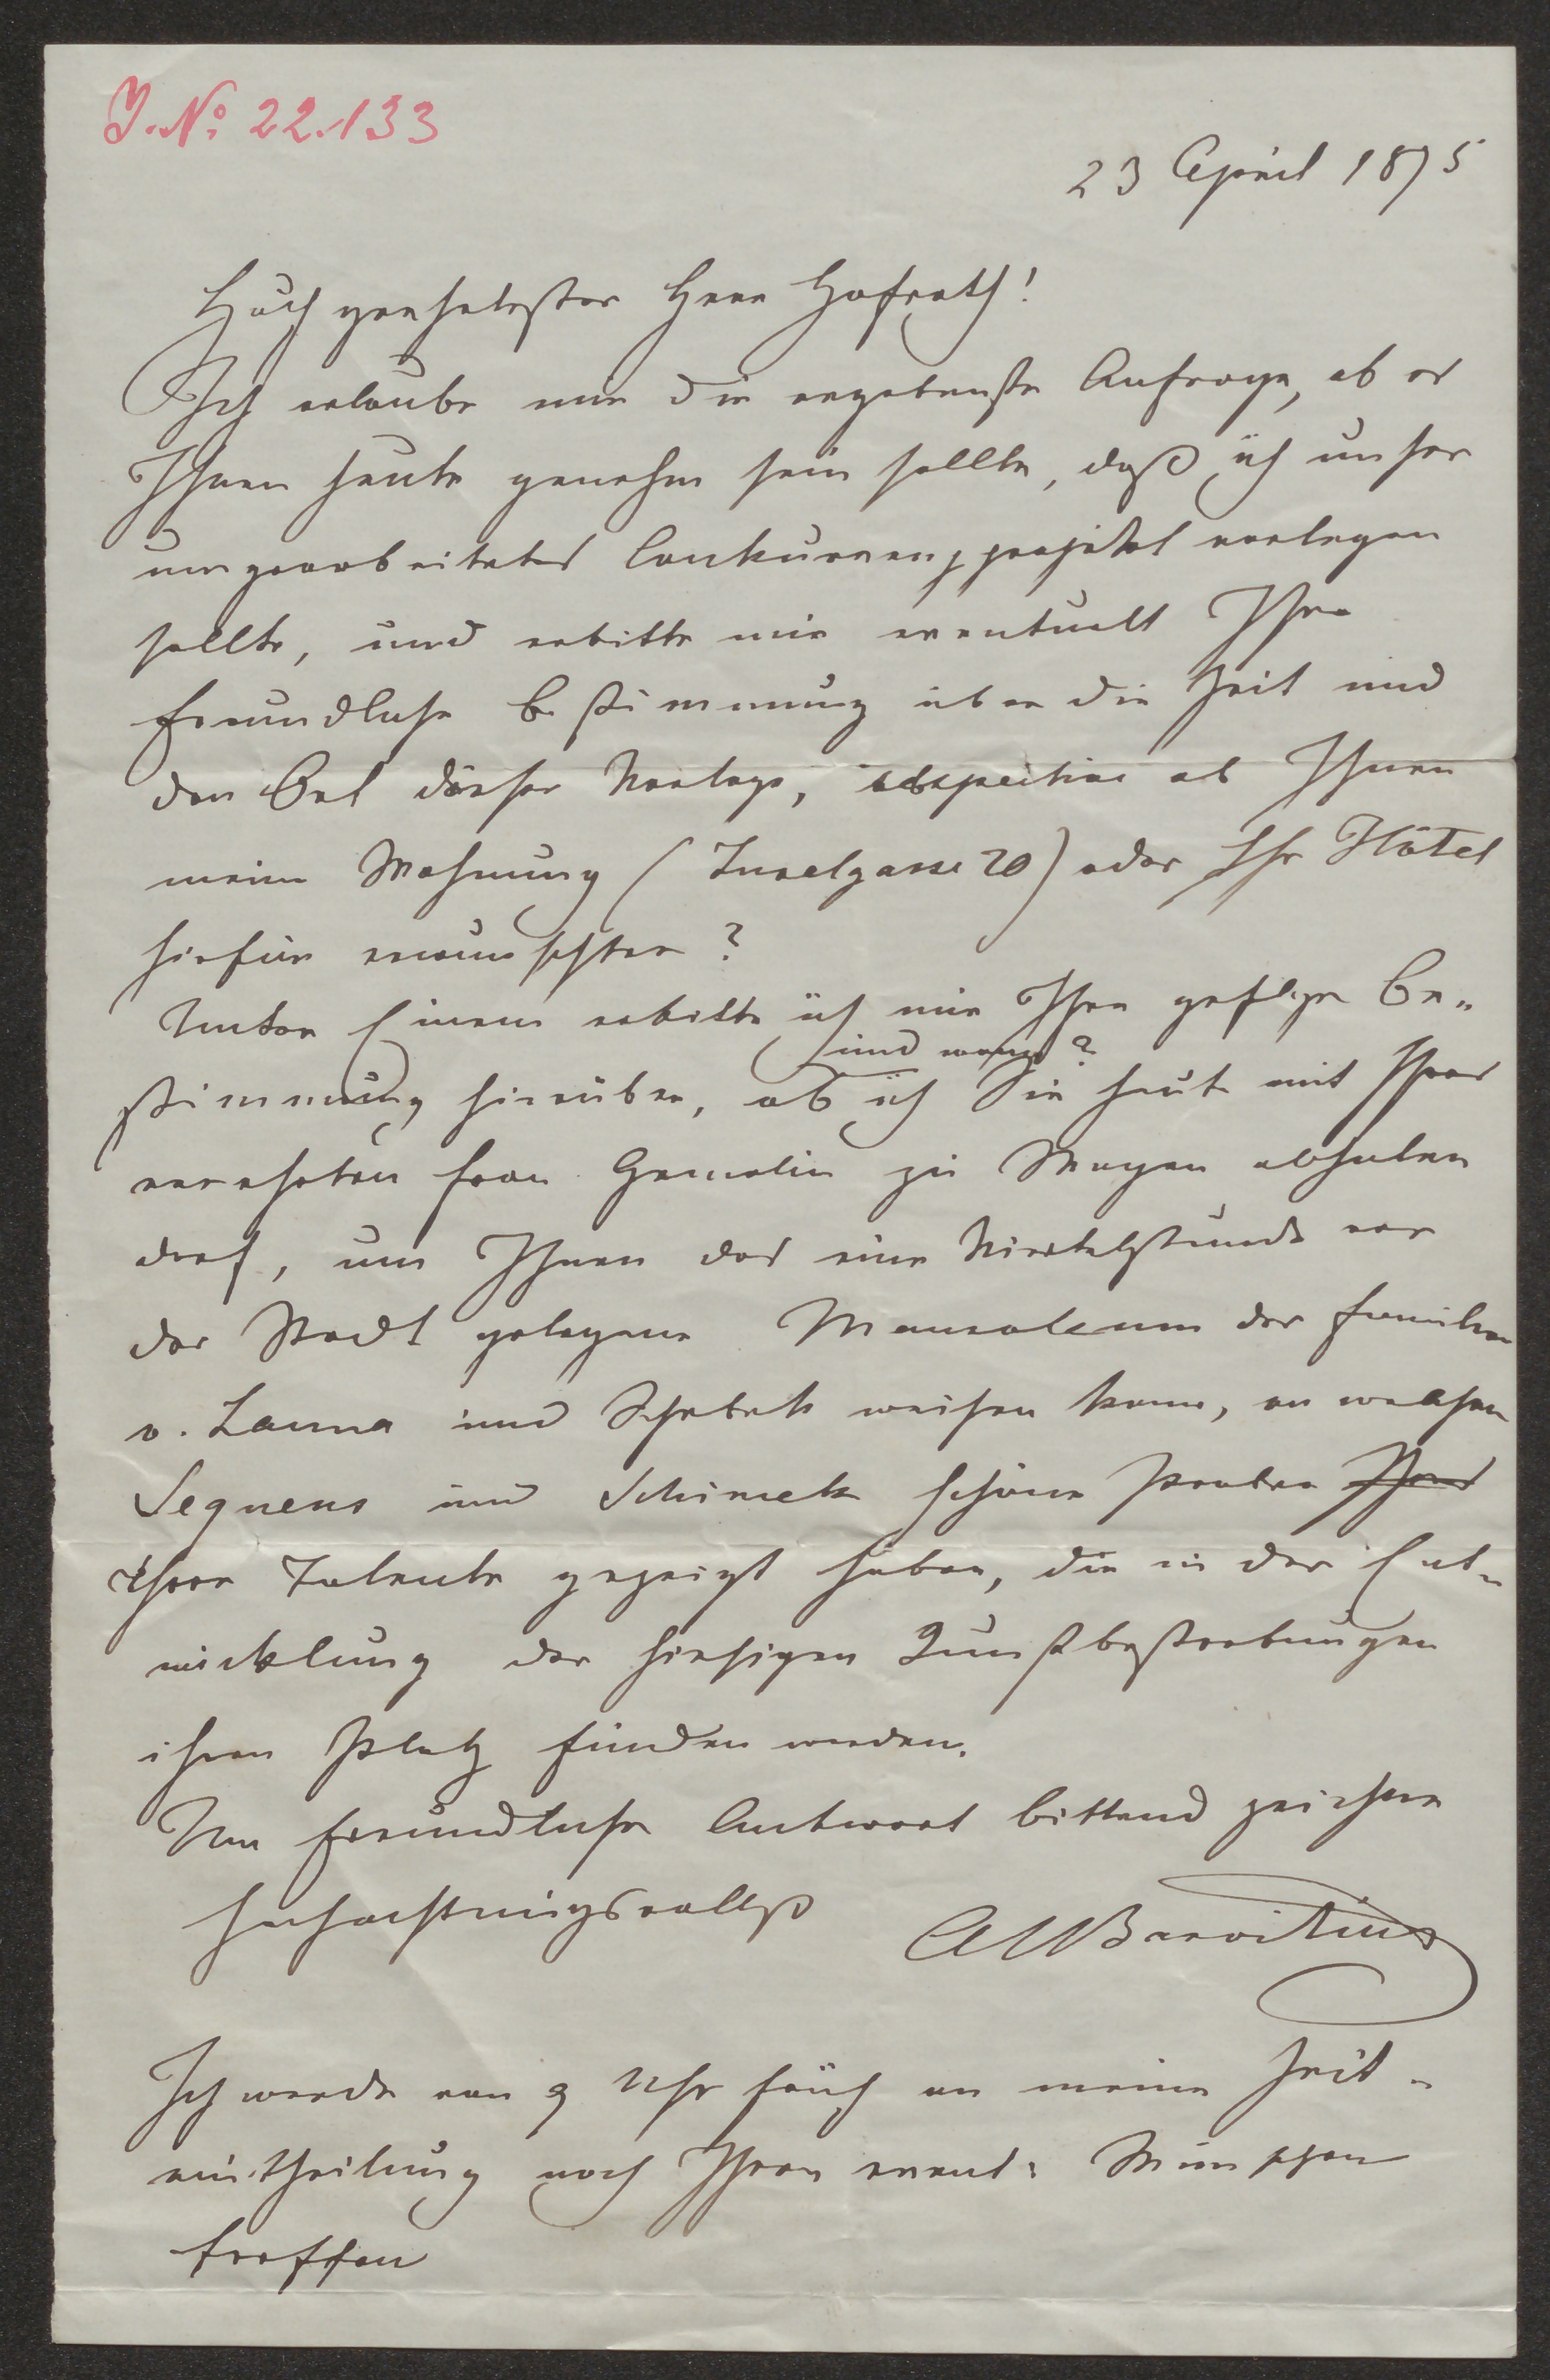 J. No: 22.133
23 April 1875
Hochgeehrtester Herr Hofrath!
Ich erlaube mir die ergebenste Anfrage, ob es
Ihnen heute genehm sein sollte, daß ich unser
umgearbeitetes Conkurrenzprojekt vorlegen
sollte, und erbitte mir eventuell Ihre
freundliche Bestimmung über die Zeit und
den Ort dieser Vorlage, respective ob Ihnen
meine Wohnung (Inselgasse 20) oder Ihr Hôtel
hiefür erwünschter?
Unter Einem erbitte ich mir Ihre geflige Be-
und wann?
stimmung hierüber, ob ich Sie heute mit Ihrer
verehrten Frau Gemalin zu Wagen abholen
darf, um Ihnen das eine Viertelstunde vor
der Stadt gelegene Mausoleum der Familien
v. Lanna und Schebek weisen kann, an welchem
Sequens und Schimek schöne Proben Ihres
Ihrer Talente gezeigt haben, die in der Ent-
wicklung der hiesigen Kunstbestrebungen
ihren Platz finden werden.
Um freundliche Antwort bittend zeichne
hochachtungsvollst
ABarvitius
Ich werde von 9 Uhr früh an meine Zeit-
eintheilung nach Ihren event: Wünschen
treffen